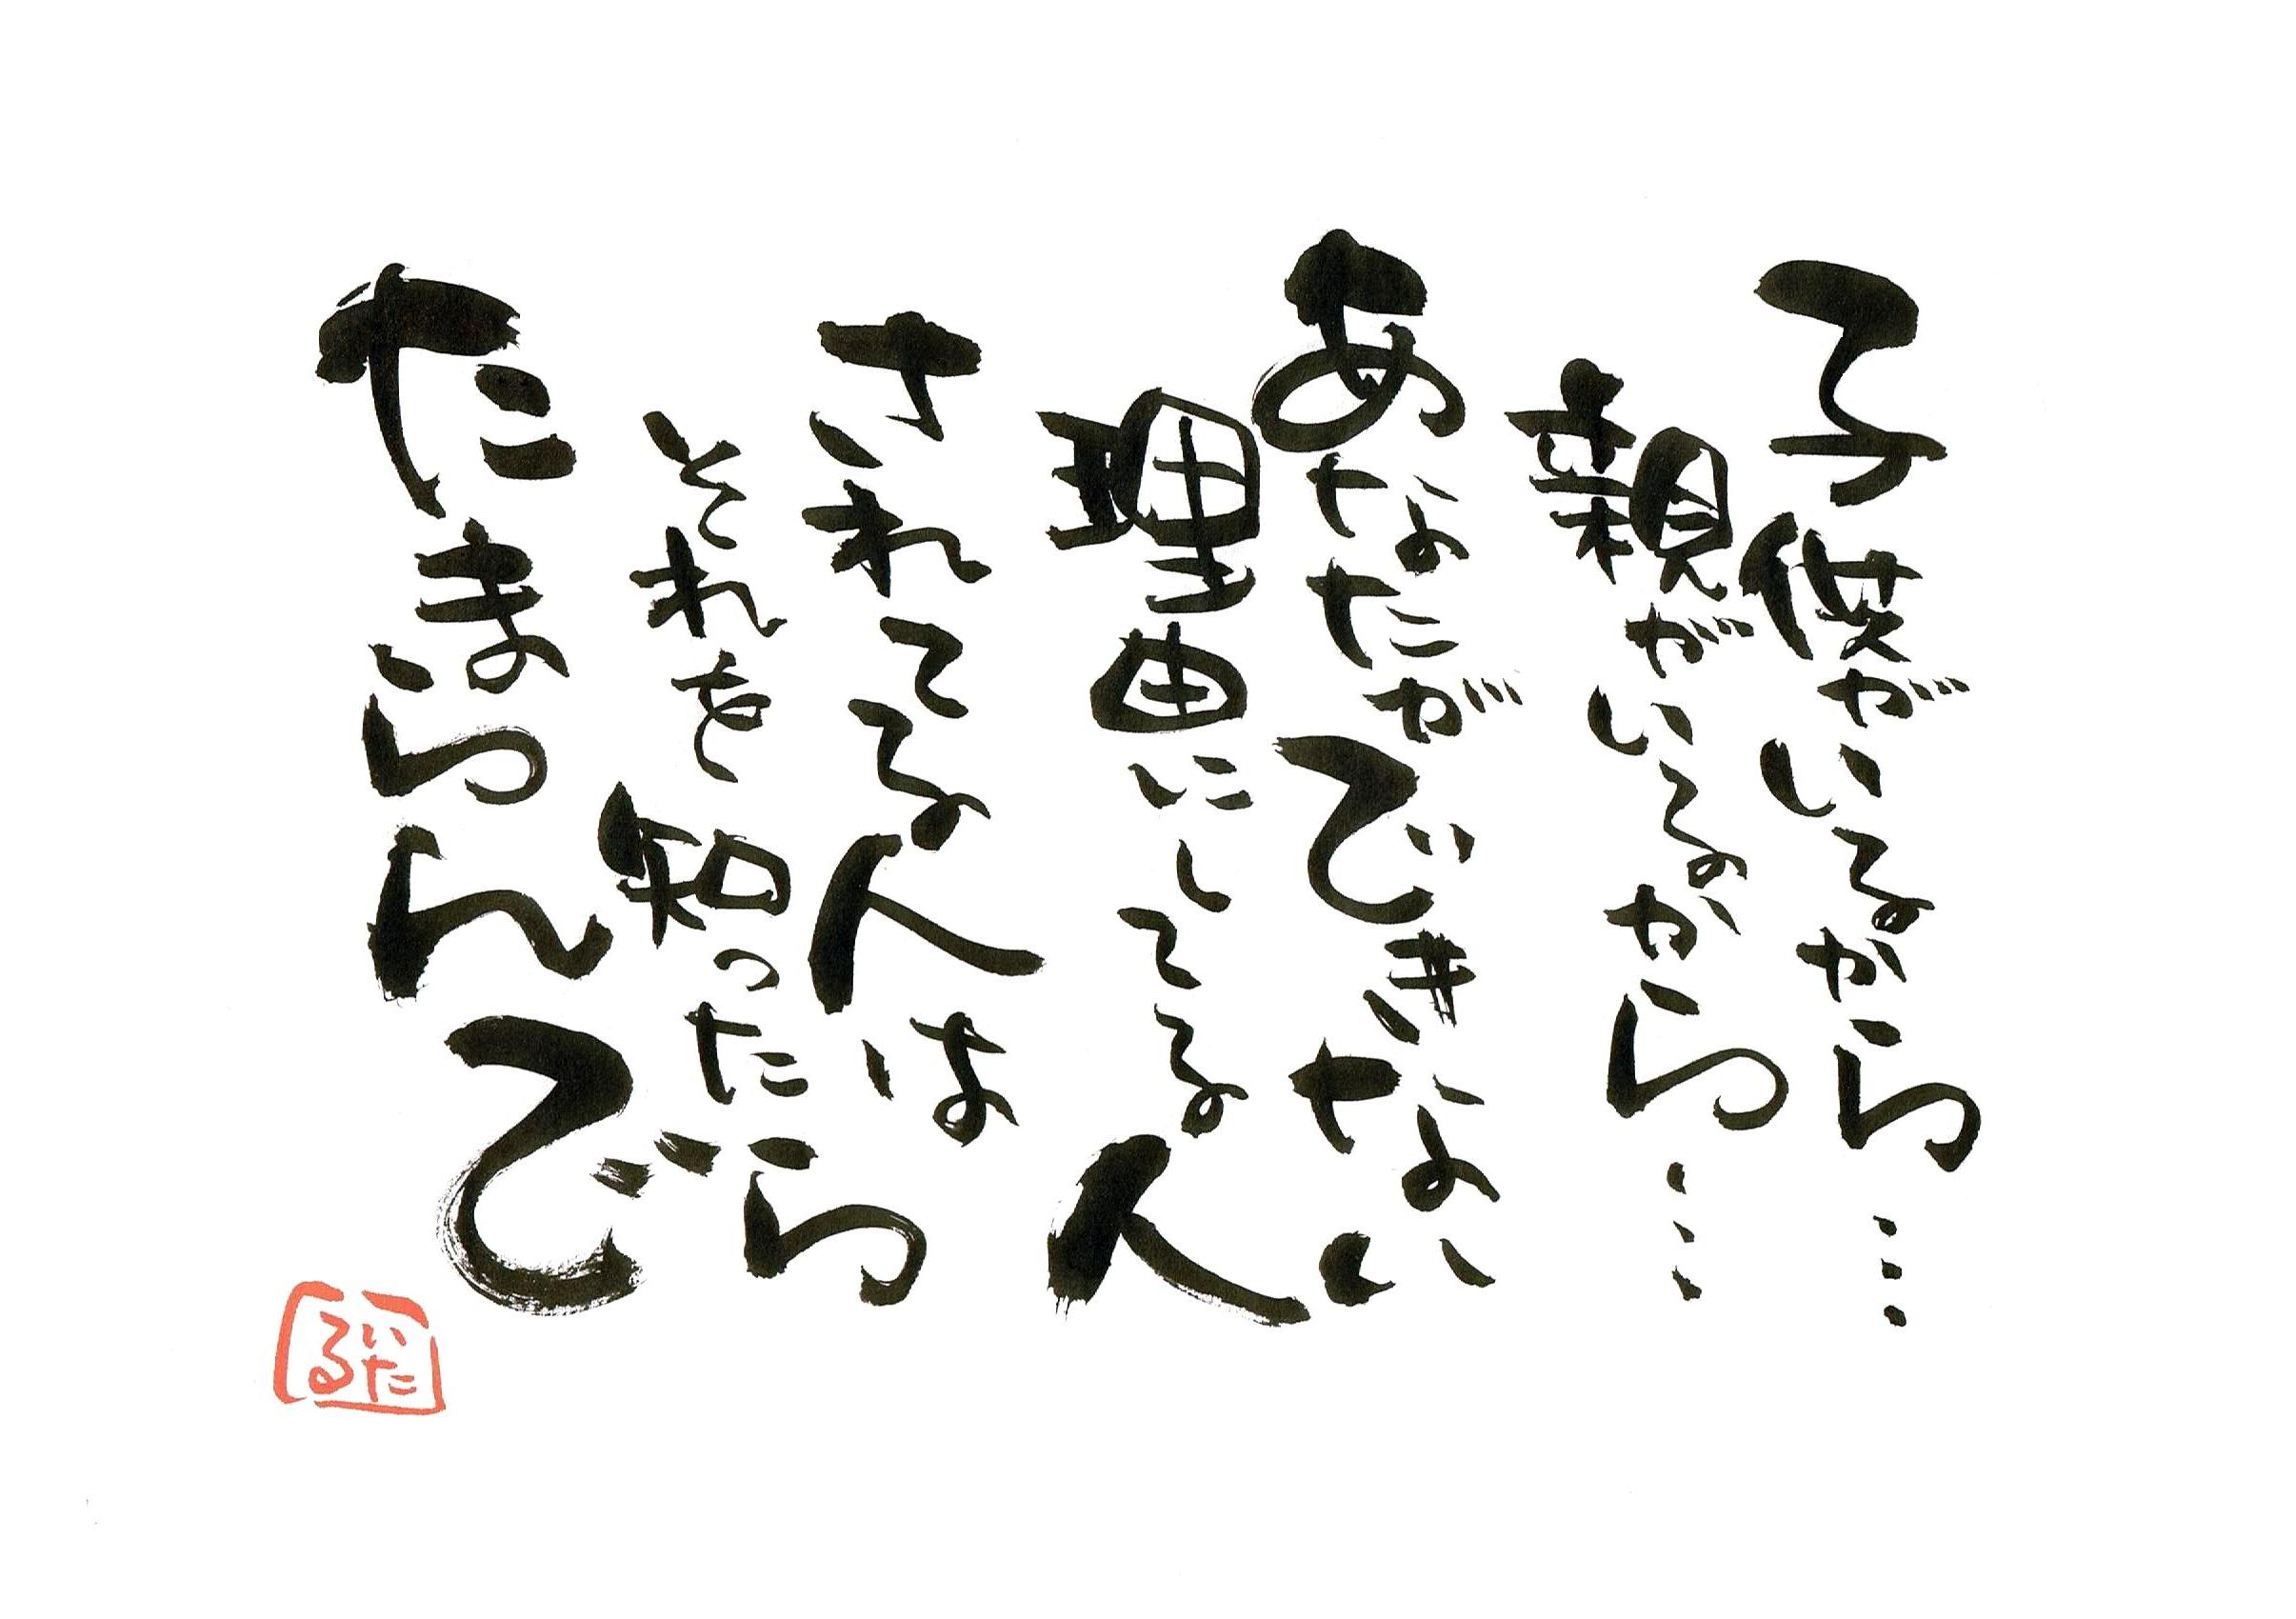 子供がいるから…
親がいるから…
あなたができない
理由にしてる人
されてる人は
それを知ったら
たまらんで
いたる